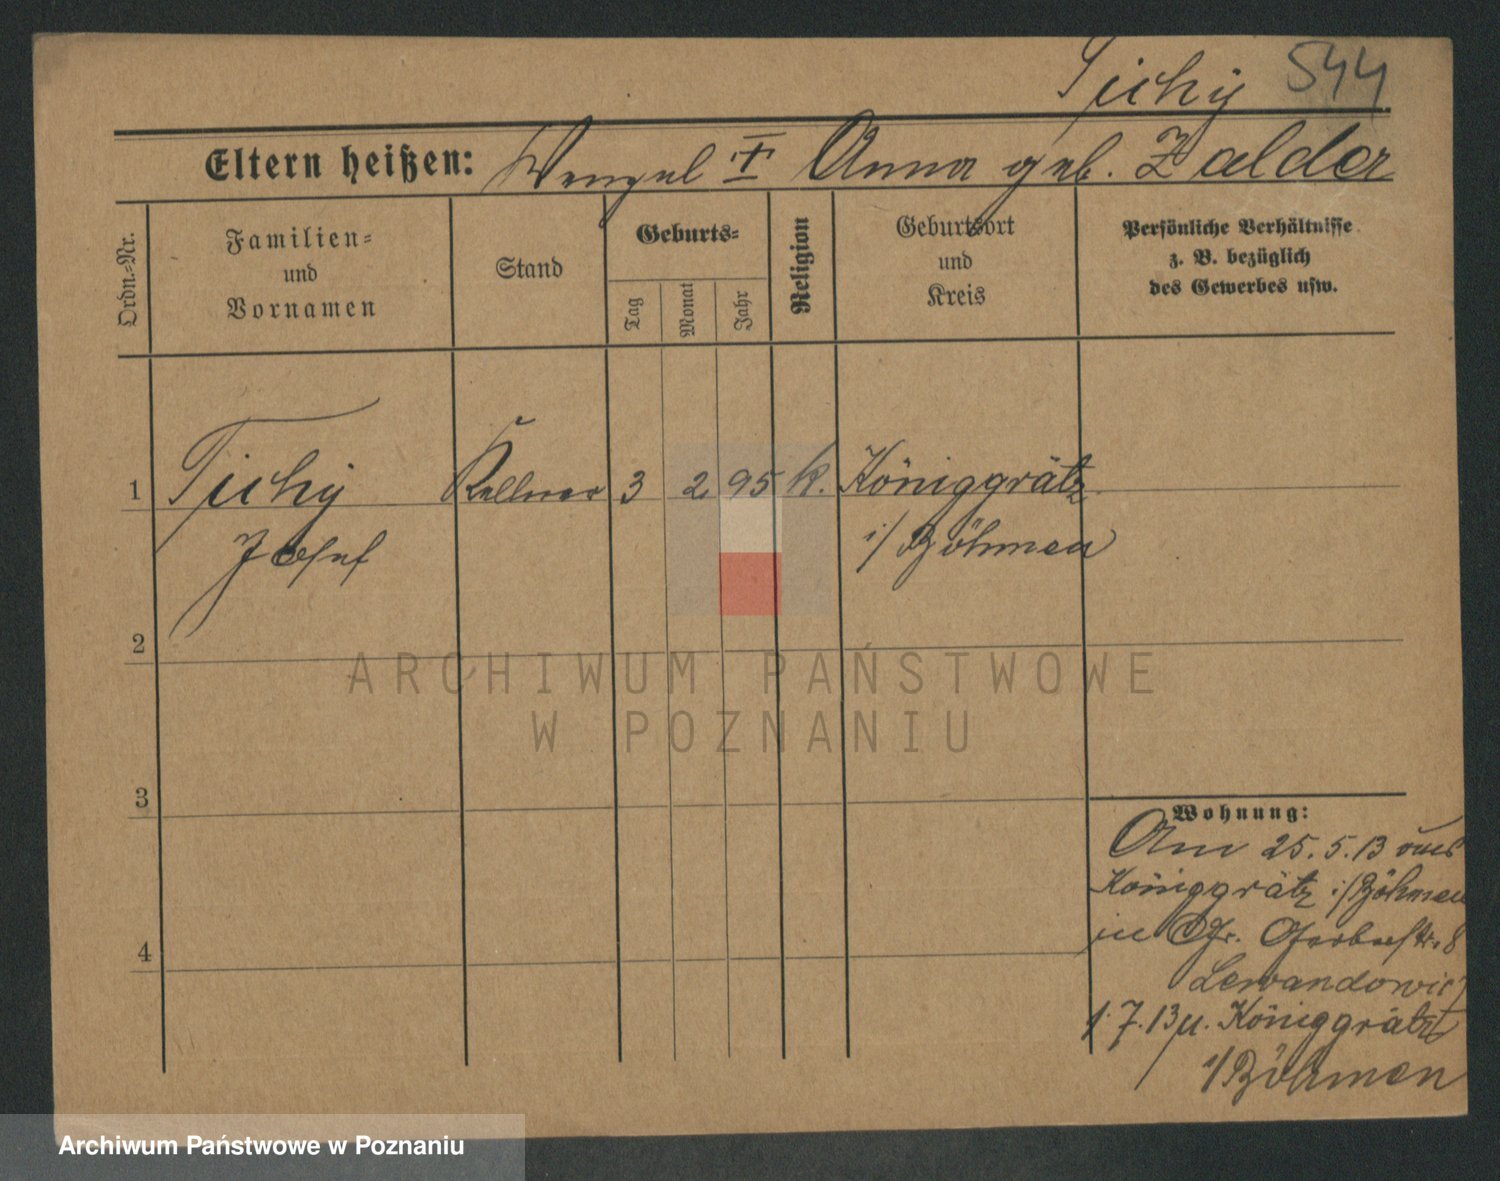 Tichy 544
Eltern heißen: Wenzel † Anna geb. Zalder
Ordn.-Nr.
Familien-
und
Vornamen
Stand
Geburts-
Tag
Monat
Jahr
Religion
Geburtsort
und
Kreis
Persönliche Verhältnisse
z. B. bezüglich
des Gewerbes usw.
1 Tichy Kellner 3 2 95 k. Königgrätz
Josef i/Böhmen
2
3
4
Wohnung:
Am 25.5.13 aus
Königgrätz i/Böhmen
in Gerberstr. 8
Lewandowicz
1.7.13 n. Königgrätz
i/Böhmen
ARCHIWUM PAŃSTWOWE
W POZNANIU
Archiwum Państwowe w Poznaniu